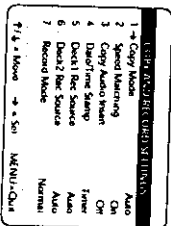 COPY AND RECORD SETTINGS
1 → Copy Mode Auto
2 Speed Matching On
3 Copy Audio Insert Off
4 Date/Time Stamp Timer
5 Deck1 Rec Source Auto
6 Deck2 Rec Source Auto
7 Record Mode Normal
↑/↓ = Move → = Set MENU=Quit